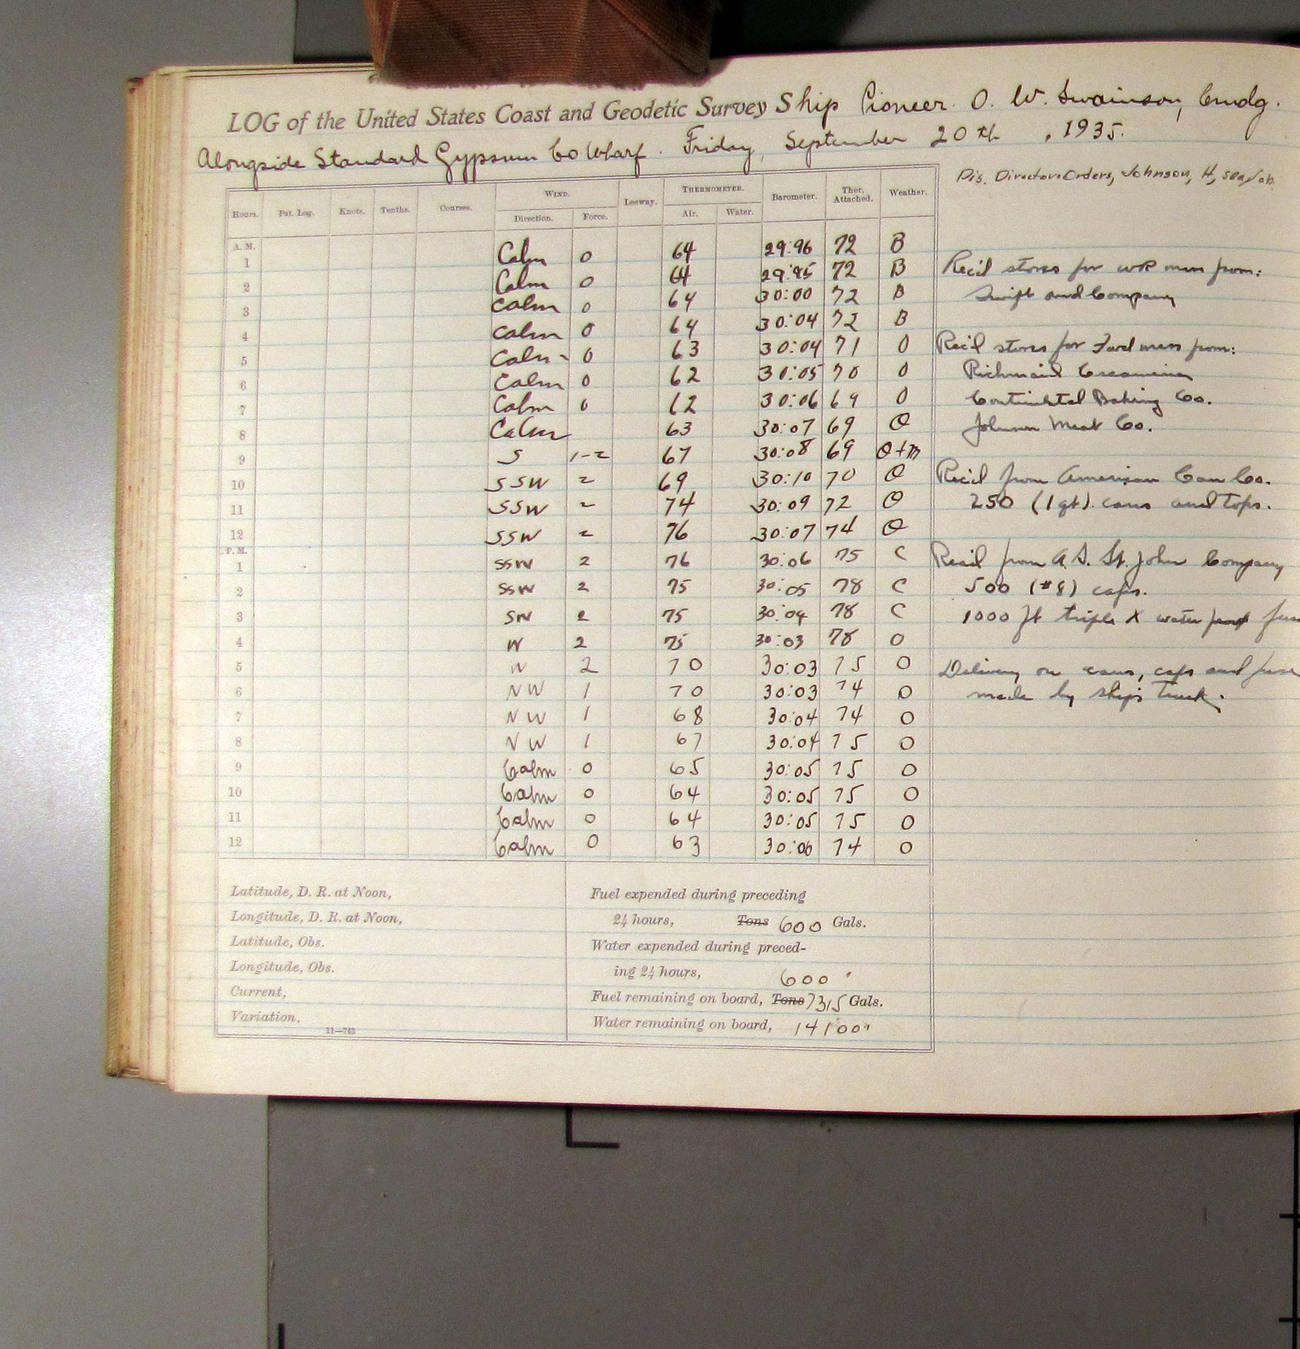 LOG of the United States Coast and Geodetic Survey Ship Pioneer. O. W. Swainson, Cmdg.
Alongside Standard Gypsum Co Wharf. Friday, September 20th, 1935.
Dis. Directors Orders, Johnson, H,
Hours. Pat. Log. Knots. Tenths. Courses. WIND. Direction. Force. Leeway. THERMOMETER. Air. Water. Barometer. Ther. Attached. Weather.
A. M.
1 Calm 0 64 29:96 72 B
2 Calm 0 64 29:95 72 B
3 Calm 0 64 30:00 72 B
4 Calm 0 64 30:04 72 B
5 Calm 0 63 30:04 71 O
6 Calm 0 62 30:05 70 O
7 Calm 0 62 30:06 69 O
8 Calm 63 30:07 69 O
9 S 1-2 67 30:08 69 O+m
10 SSW 2 69 30:10 70 O
11 SSW 2 74 30:09 72 O
12 SSW 2 76 30:07 74 O
P. M.
1 SSW 2 76 30:06 75 C
2 SSW 2 75 30:05 78 C
3 SW 2 75 30:04 78 C
4 W 2 75 30:03 78 O
5 W 2 70 30:03 75 O
6 NW 1 70 30:03 74 O
7 NW 1 68 30:04 74 O
8 NW 1 67 30:04 75 O
9 Calm 0 65 30:05 75 O
10 Calm 0 64 30:05 75 O
11 Calm 0 64 30:05 75 O
12 Calm 0 63 30:06 74 O
Rec'd stores for WR mess from:
Swift and Company
Rec'd stores for Fwd mess from:
Richmaid Creameries
Continental Baking Co.
Johnson Meat Co.
Rec'd from American Can Co.
250 (1 qt). cans and tops.
Rec'd from A. S. St. John Company
500 (#8) caps.
1000 ft triple X water proof fuse
Delivery on cans, caps and fuse
made by ship's truck.
Latitude, D. R. at Noon,
Longitude, D. R. at Noon,
Latitude, Obs.
Longitude, Obs.
Current,
Variation,
11—763
Fuel expended during preceding
24 hours, Tons 600 Gals.
Water expended during preced-
ing 24 hours, 600 "
Fuel remaining on board, Tons 7315 Gals.
Water remaining on board, 14100 "